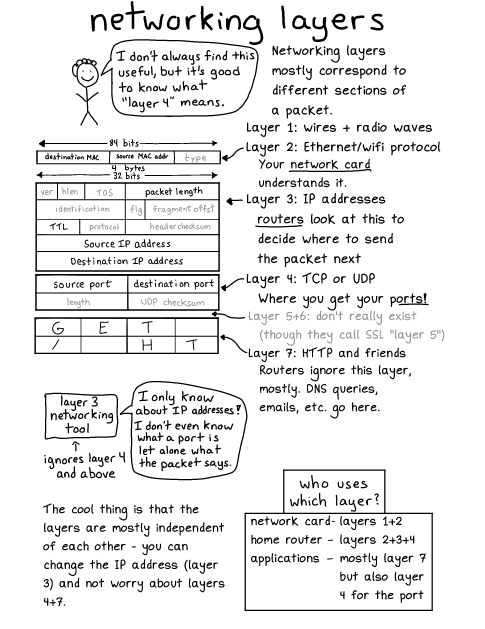 networking layers
I don't always find this
useful, but it's good
to know what
"layer 4" means.
Networking layers
mostly correspond to
different sections of
a packet.
Layer 1: wires + radio waves
Layer 2: Ethernet/wifi protocol
Your network card
understands it.
Layer 3: IP addresses
routers look at this to
decide where to send
the packet next
Layer 4: TCP or UDP
Where you get your ports!
Layer 5+6: don't really exist
(though they call SSL "layer 5")
Layer 7: HTTP and friends
Routers ignore this layer,
mostly. DNS queries,
emails, etc. go here.
84 bits
destination MAC source MAC addr type
4 bytes
32 bits
ver hlen TOS packet length
identification flg fragment offst
TTL protocol header checksum
Source IP address
Destination IP address
source port destination port
length UDP checksum
G E T
/ H T
layer 3
networking
tool
ignores layer 4
and above
I only know
about IP addresses!
I don't even know
what a port is
let alone what
the packet says.
The cool thing is that the
layers are mostly independent
of each other - you can
change the IP address (layer
3) and not worry about layers
4+7.
who uses
which layer?
network card- layers 1+2
home router - layers 2+3+4
applications - mostly layer 7
but also layer
4 for the port